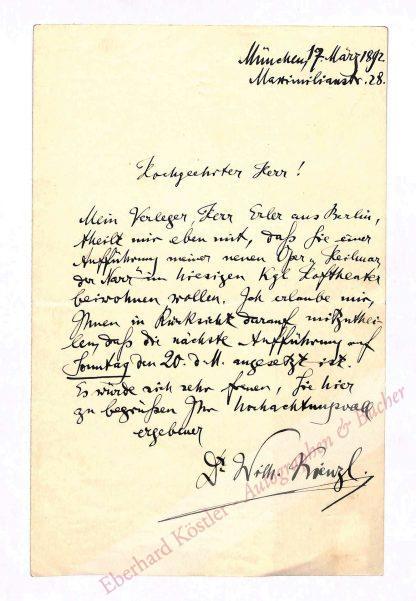 München, 17. März 1892
Maximilianstr. 28.
Hochgeehrter Herr!
Mein Verleger, Herr Erler aus Berlin,
theilt mir eben mit, daß Sie einer
Aufführung meiner neuen Oper „Heilmar
der Narr" im hiesigen Kgl Hoftheater
beiwohnen wollen. Ich erlaube mir,
Ihnen in Rücksicht darauf mitzuthei-
len, daß die nächste Aufführung auf
Sonntag den 20. d M. angesetzt ist.
Es würde sich sehr freuen, Sie hier
zu begrüßen Ihr hochachtungsvoll
ergebener
Dr. Wilh. Kienzl.
Eberhard Köstler - Autographen & Bücher